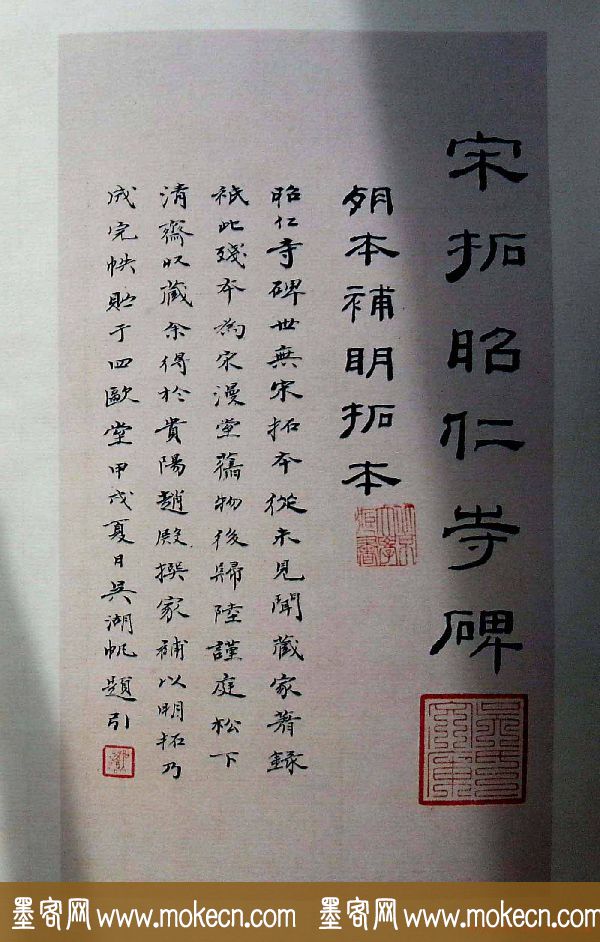 宋拓昭仁寺碑
残本補明拓本
昭仁寺碑世無宋拓本從未見聞藏家著録
祇此殘本為宋漫堂舊物後歸陸謹庭松下
清齋收藏余得於貴陽趙殿撰家補以明拓乃
成完帙貯于四歐堂甲戌夏日吳湖帆題引
墨客网 www.mokecn.com 墨客网 www.mokecn.com